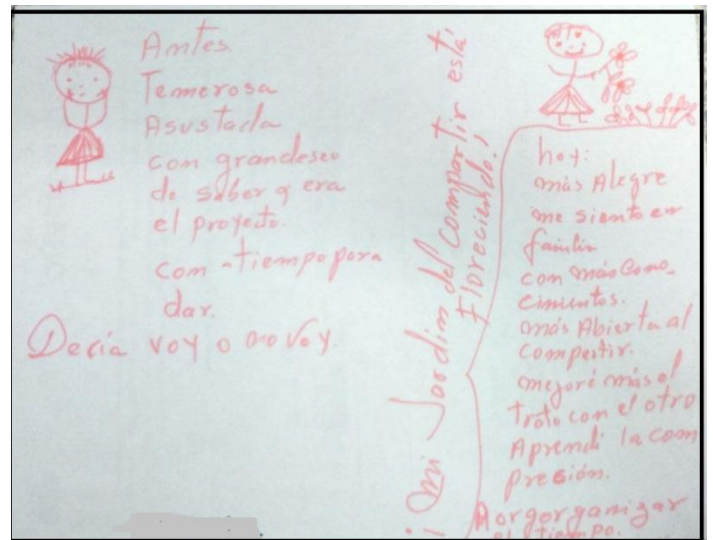 Antes
Temerosa
Asustada
con grandeseo
de saber q era
el proyecto.
com tiempo para
dar.
Decía voy o no voy.
¡Mi Jardin del compartir está
Floreciendo!
hoy:
más Alegre
me siento en
familia
con más Cono_
cimientos.
más Abierta al
Compartir.
mejoré más el
trato con el otro
Aprendí la com
presión.
A orgorganizar
el tiempo.